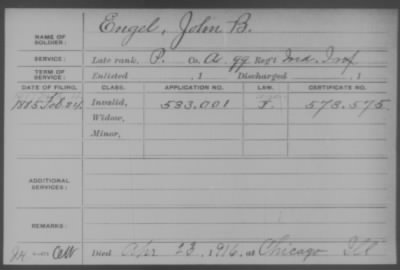 NAME OF SOLDIER: Engel, John B.
SERVICE: Late rank, P. Co. A, 99 Reg't Ind. Inf.
TERM OF SERVICE: Enlisted , 1 Discharged , 1
DATE OF FILING. CLASS. APPLICATION NO. LAW. CERTIFICATE NO.
1885 Feb. Invalid, 533.001 573.575
Widow,
Minor,
ADDITIONAL SERVICES:
REMARKS:
Died Apr 23, 1916, at Chicago Ill